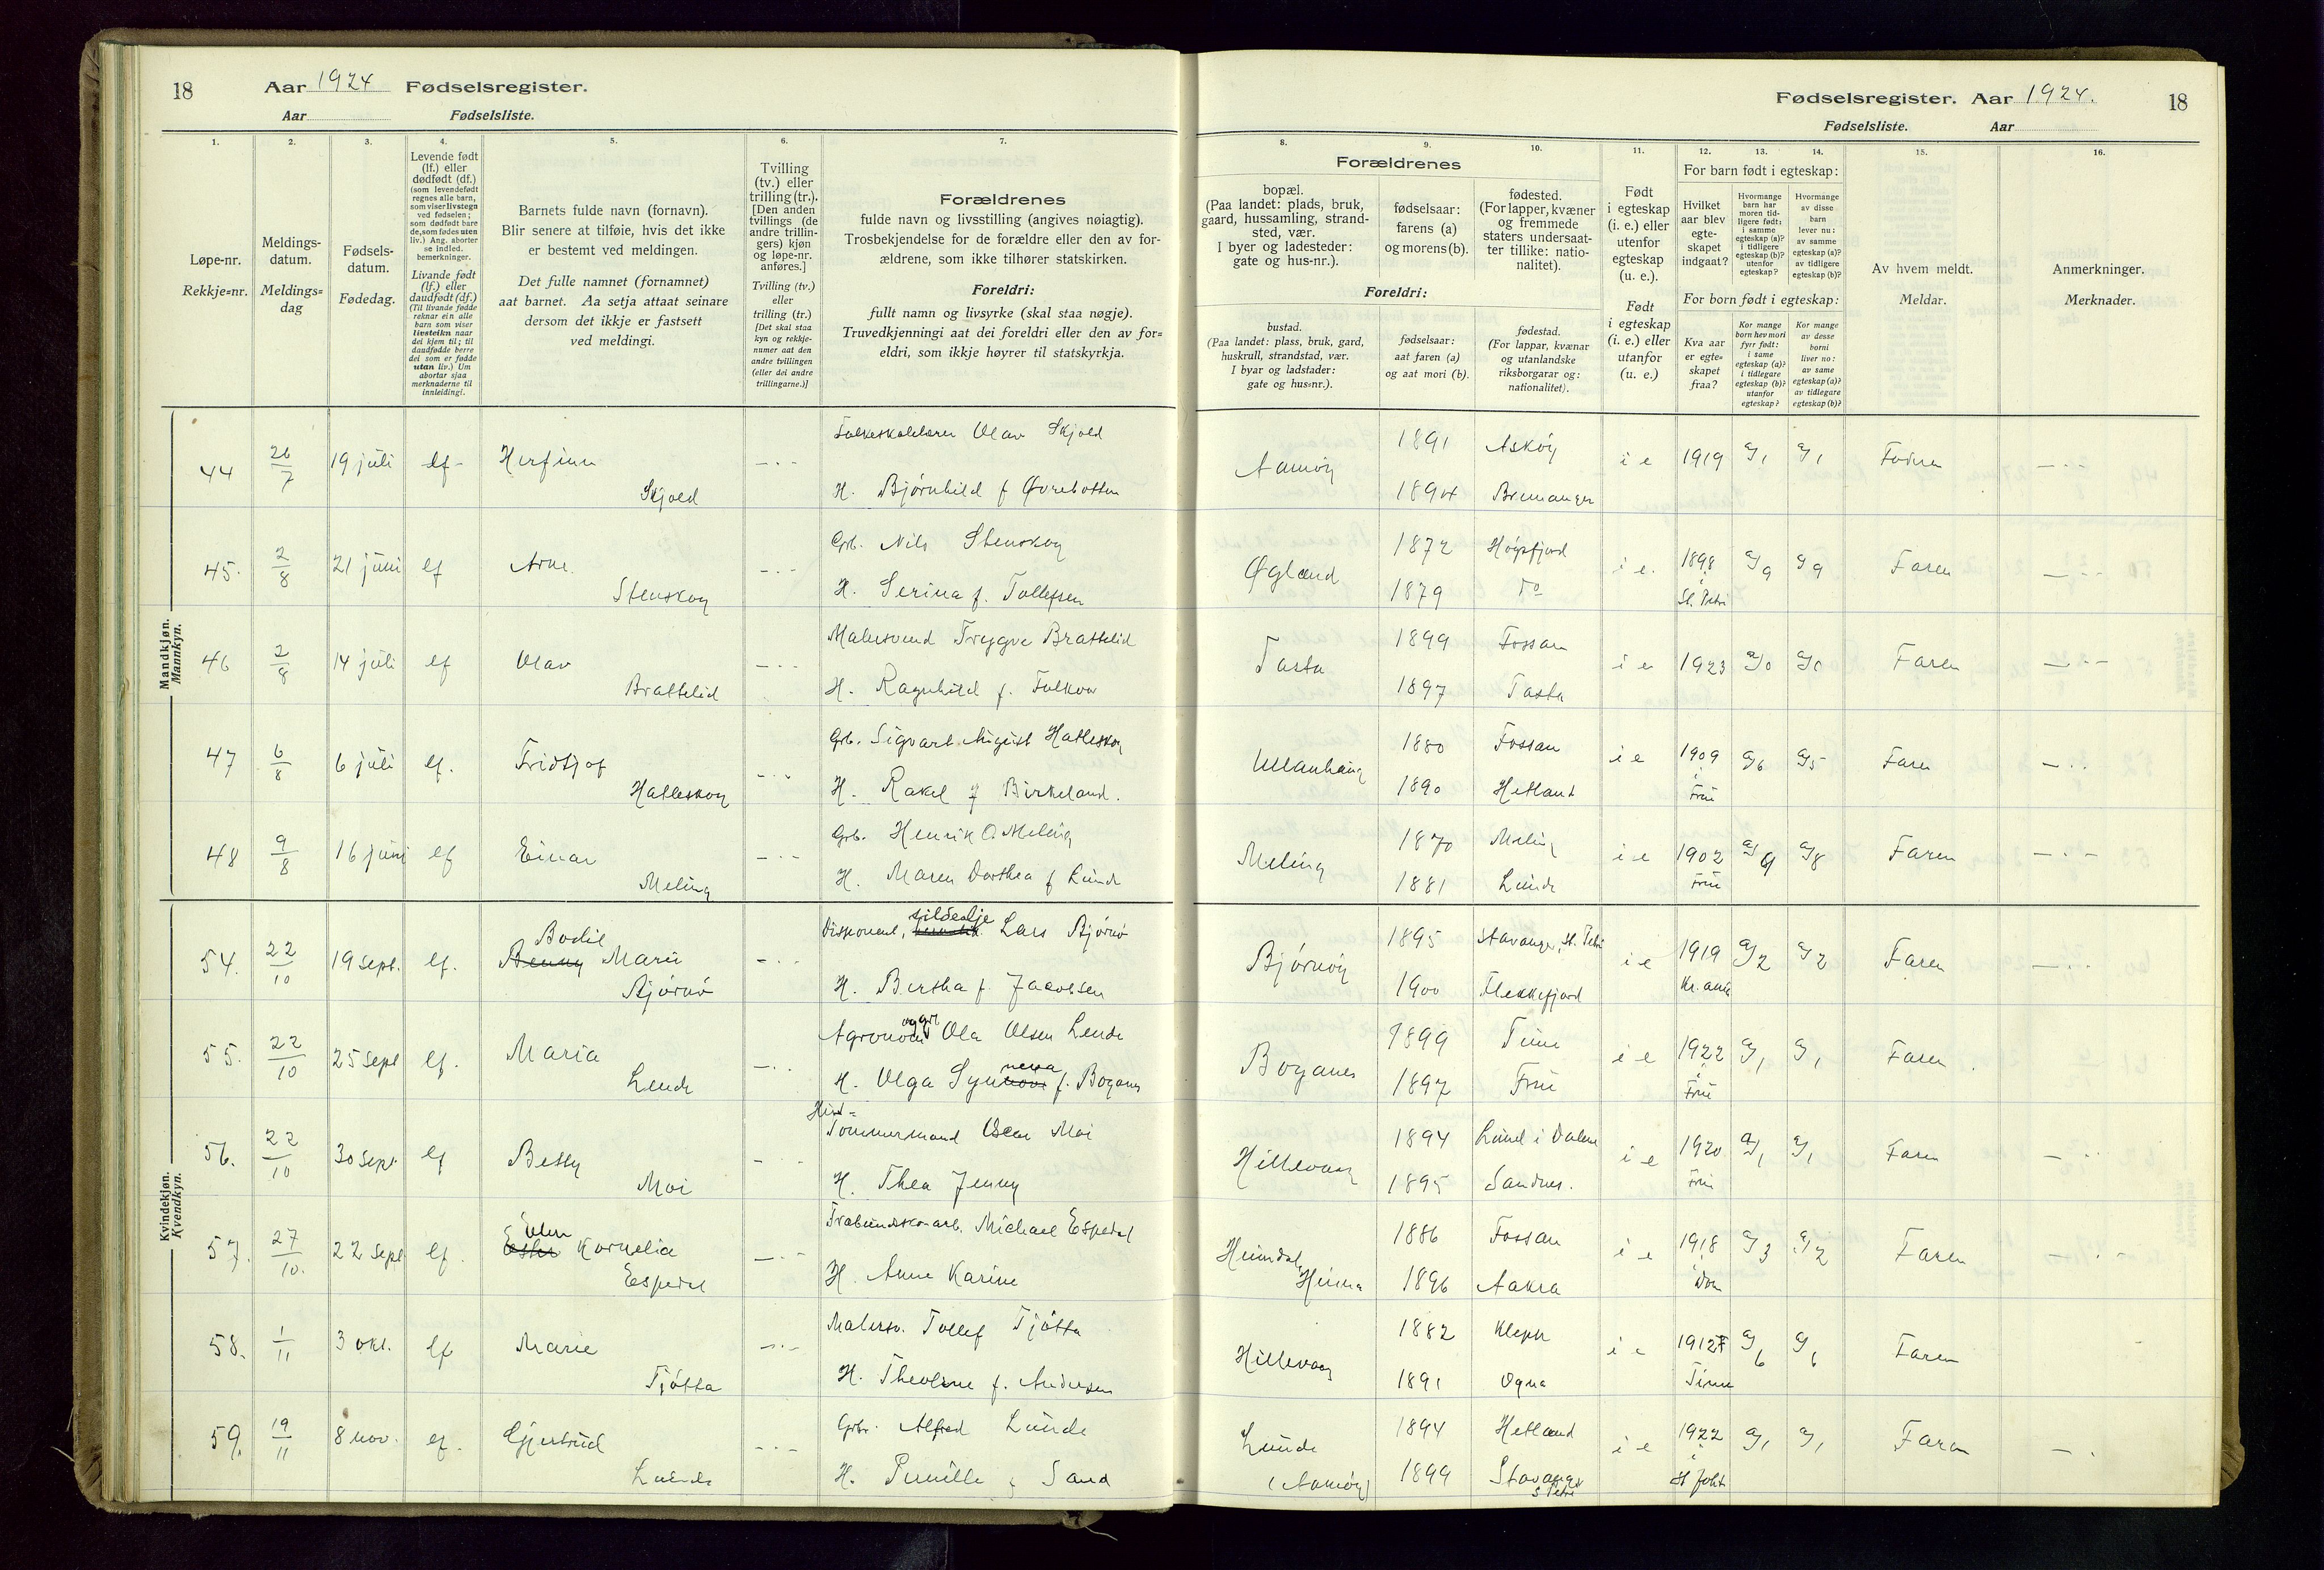 18
Aar 1924 Fødselsregister.
Aar Fødselsliste.
1. 2. 3. 4. 5. 6. 7.
Løpe-nr.
Rekkje=nr.
Meldings-
datum.
Meldings=
dag
Fødsels-
datum.
Fødedag.
Levende født
(lf.) eller
dødfødt (df.)
(som levendefødt
regnes alle barn,
som viser livstegn
ved fødselen;
som dødfødt bare
de, som fødes uten
liv.) Ang. aborter
se indled.
bemerkninger.
Livande født
(lf.) eller
daudfødt (df.)
(Til livande fødde
reknar ein alle
barn som viser
livsteikn naar
dei kjem til; til
daudfødde berre
dei som er fødde
utan liv.) Um
abortar sjaa
merknaderne til
innleidingi.
Barnets fulde navn (fornavn).
Blir senere at tilføie, hvis det ikke
er bestemt ved meldingen.
Det fulle namnet (fornamnet)
aat barnet. Aa setja attaat seinare
dersom det ikkje er fastsett
ved meldingi.
Tvilling
(tv.) eller
trilling (tr.).
[Den anden
tvillings (de
andre trillin-
gers) kjøn
og løpe-nr.
anføres.]
Tvilling (tv.)
eller
trilling (tr.)
[Det skal staa
kyn og rekkje-
numer aat den
andre tvillingen
(eller dei andre
trillingarne.)]
Forældrenes
fulde navn og livsstilling (angives nøiagtig).
Trosbekjendelse for de forældre eller den av for-
ældrene, som ikke tilhører statskirken.
Foreldri:
fullt namn og livsyrke (skal staa nøgje).
Truvedkjenningi aat dei foreldri eller den av for=
eldri, som ikkje høyrer til statskyrkja.
Mandkjøn.
Mannkyn.
44 26/7 19 juli lf - Herfinn Skjold -·-
Folkeskolelærer Olav Skjold
H. Bjørnhild f Øvrebotten
45. 2/8 21 juni lf Arne Stenskog -·-
Grb. Nils Stenskog
H. Serina f. Tollefsen
46 2/8 14 juli lf Olav Brattelid -·-
Malersvend Trygve Brattelid
H. Ragnhild f. Falkor
47 6/8 6 juli lf. Fridtjof Hatleskog -·-
Grb. Sigvart August Hatleskog
H. Rakel f Birkeland.
48 9/8 16 juni lf Einar Meling -·-
Grb. Henrik O. Meling
H. Maren Dorthea f Lunde
Kvindekjøn.
Kvendkyn.
54. 22/10 19 sept. lf. Bodil
Benny Marie
Bjørnø -·-
Disponent, sildeolje Lars Bjørnø
H. Bertha f. Jacobsen
55. 22/10 25 sept lf. Maria Lende -·-
Agronom og grb Ola Olsen Lende
H. Olga Synnøve neva f. Boganes
56. 22/10 30 sept. lf Betsy Moi -·-
Hird=
Tømmermand Oscar Moi
H. Thea Jenny
57. 27/10. 22 sept lf. Elen
Ester Kornelia
Espedal -·-
Michael Espedal
H. Anne Karine
58. 1/11 3 okt. lf Marie Tjøtta -·-
Malersv. Tollef Tjøtta
H. Theoline f. Andersen
59. 19/11 8 nov. lf. Gjertrud Lunde -·-
Grbr. Alfred Lunde
H. Pernille f Sand
Fødselsregister. Aar 1924. 18
Fødselsliste. Aar
8. 9. 10. 11. 12. 13. 14. 15. 16.
Forældrenes
bopæl.
(Paa landet: plads, bruk,
gaard, hussamling, strand-
sted, vær.
I byer og ladesteder:
gate og hus-nr.).
fødselsaar:
farens (a)
og morens (b).
fødested.
(For lapper, kvæner
og fremmede
staters undersaat-
ter tillike: natio-
nalitet).
Foreldri:
bustad.
(Paa landet: plass, bruk, gard,
huskrull, strandstad, vær.
I byar og ladstader:
gate og hus=nr.).
fødselsaar:
aat faren (a)
og aat mori (b).
fødestad.
(For lappar, kvænar
og utanlandske
riksborgarar og:
nationalitet).
Født
i egteskap
(i. e.) eller
utenfor
egteskap
(u. e.).
Født
i egteskap
(i. e.) eller
utanfor
(u. e.)
For barn født i egteskap:
Hvilket
aar blev
egte-
skapet
indgaat?
Hvormange
barn har
moren tid-
ligere født:
i samme
egteskap (a)?
i tidligere
egteskap (b)?
utenfor
egteskap?
Hvormange
av disse
barn
lever nu:
av samme
egteskap (a)?
av tidligere
egteskap (b)?
For born født i egteskap:
Kva aar
er egte=
skapet
fraa?
Kor mange
born hev mori
fyrr født:
i same
egteskap (a)?
i tidlegare
egteskap (b)?
utanfor
egteskap?
Kor mange
av desse
borni
liver no:
av same
egteskap (a)?
av tidlegare
egteskap (b)?
Av hvem meldt.
Meldar.
Anmerkninger.
Merknader.
Aamøy 1891 Askøy i e 1919 a/1 a/1 Faren -·-
1894 Bremanger
Øgland 1872 Høgsfjord i e. 1898 a/9 a/9 Faren -·-
1879 Do i St. Petri
Tasta 1899 Fossan i e 1923 a/0 a/0 Faren -·-
1897 Tasta
Ullanhaug 1880 Fossan i e 1909 a/6 a/5 Faren -·-
1890 Hetland i Frue
Meling 1870 Meling i e 1902 a/9 a/8 Faren -·-
1881 Lunde i Frue
Bjørnøy 1895 Stavanger, St. Petri i e 1919 a/2 a/2 Faren -·-
1900 Flekkefjord Kr. ania
Boganes 1899 Time i e 1922 a/1 a/1 Faren
1897 Frue i Frue
Hillevaag 1894 Lund i Dalene i e 1920 a/1 a/1 Faren -·-
1895 Sandnes. Frue
Heimdal, 1886 Fossan i e 1918 a/3 a/2 Faren -·-
Hinna 1896 Aakra i Dom
Hillevaag 1882 Klepp i e 1912 a/6 a/6 Faren
1891 Ogna Time
Lunde 1894 Hetland i e 1922 a/1 a/1 Faren -·
(Aamøy) 1899 Stavanger i St Joh
S. Petri